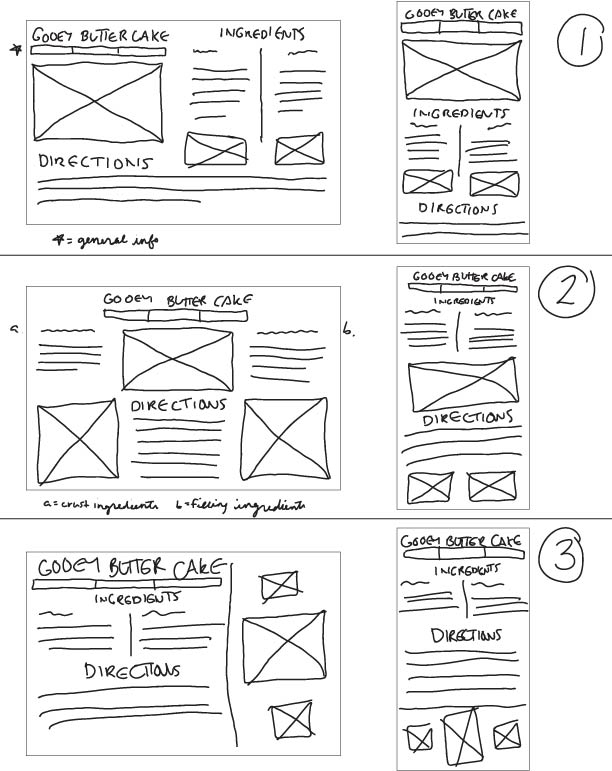 GOOEY BUTTER CAKE
INGREDIENTS
DIRECTIONS
★ = general info
GOOEY BUTTER CAKE
INGREDIENTS
DIRECTIONS
1
GOOEY BUTTER CAKE
a.
b.
DIRECTIONS
a = crust ingredients b = filling ingredients
GOOEY BUTTER CAKE
INGREDIENTS
DIRECTIONS
2
GOOEY BUTTER CAKE
INGREDIENTS
DIRECTIONS
GOOEY BUTTER CAKE
INGREDIENTS
DIRECTIONS
3